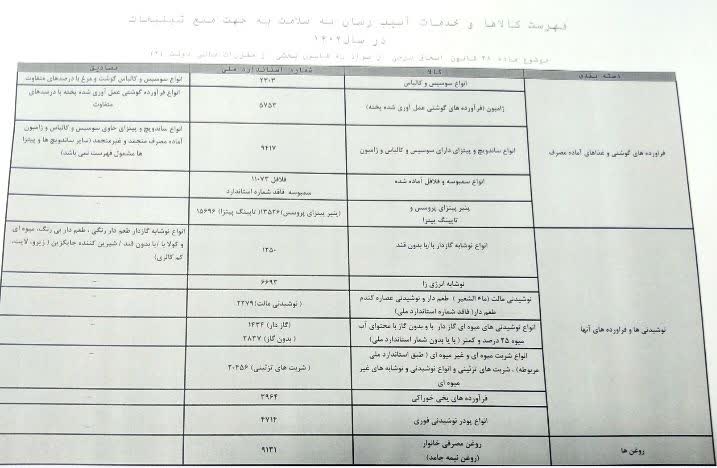 فهرست کالاها و خدمات آسیب رسان به سلامت به جهت منع تبلیغات
در سال ۱۴۰۲
موضوع ماده ۴۸ قانون الحاق برخی از مواد به قانون بخشی از مقررات مالی دولت (۲)
دسته بندی کالا شماره استاندارد ملی مصادیق
فرآورده های گوشتی و غذاهای آماده مصرف
انواع سوسیس و کالباس ۲۳۰۳ انواع سوسیس و کالباس گوشت و مرغ با درصدهای متفاوت
ژامبون (فرآورده های گوشتی عمل آوری شده پخته) ۵۷۵۳ انواع فرآورده گوشتی عمل آوری شده پخته با درصدهای
متفاوت
انواع ساندویچ و پیتزای دارای سوسیس و کالباس و ژامبون ۹۴۱۷ انواع ساندویچ و پیتزای حاوی سوسیس و کالباس و ژامبون
آماده مصرف منجمد و غیرمنجمد (سایر ساندویچ ها و پیتزا
ها مشمول فهرست نمی باشد)
انواع سمبوسه و فلافل آماده شده فلافل ۱۱۰۷۳ –
سمبوسه فاقد شماره استاندارد
پنیر پیتزای پروسس و (پنیر پیتزای پروسس)۱۳۵۲۶( تاپینگ پیتزا) ۱۵۶۹۶ –
تاپینگ پیتزا
نوشیدنی ها و فرآورده های آنها
انواع نوشابه گازدار با/یا بدون قند ۱۲۵۰ انواع نوشابه گازدار طعم دار رنگی ، طعم دار بی رنگ، میوه ای
و کولا با /یا بدون قند / شیرین کننده جایگزین ( زیرو، لایت،
کم کالری)
نوشابه انرژی زا ۶۶۹۳ –
نوشیدنی مالت (ماء الشعیر ) طعم دار و نوشیدنی عصاره گندم (نوشیدنی مالت) ۲۲۷۹ –
طعم دار( فاقد شماره استاندارد ملی)
انواع نوشیدنی های میوه ای گاز دار با و بدون گاز با محتوای آب (گاز دار) ۱۴۳۴ –
میوه ۲۵ درصد و کمتر ( با یا بدون شمار استاندارد ملی) ( بدون گاز) ۲۸۳۷
انواع شربت میوه ای و غیر میوه ای ( طبق استاندارد ملی ( شربت های تزئینی) ۲۰۲۵۶ –
مربوطه) ، شربت های تزئینی و انواع نوشیدنی و نوشابه های غیر
میوه ای
فرآورده های یخی خوراکی ۲۹۶۴ –
انواع پودر نوشیدنی فوری ۴۷۱۴ –
روغن ها روغن مصرفی خانوار ۹۱۳۱ –
(روغن نیمه جامد)